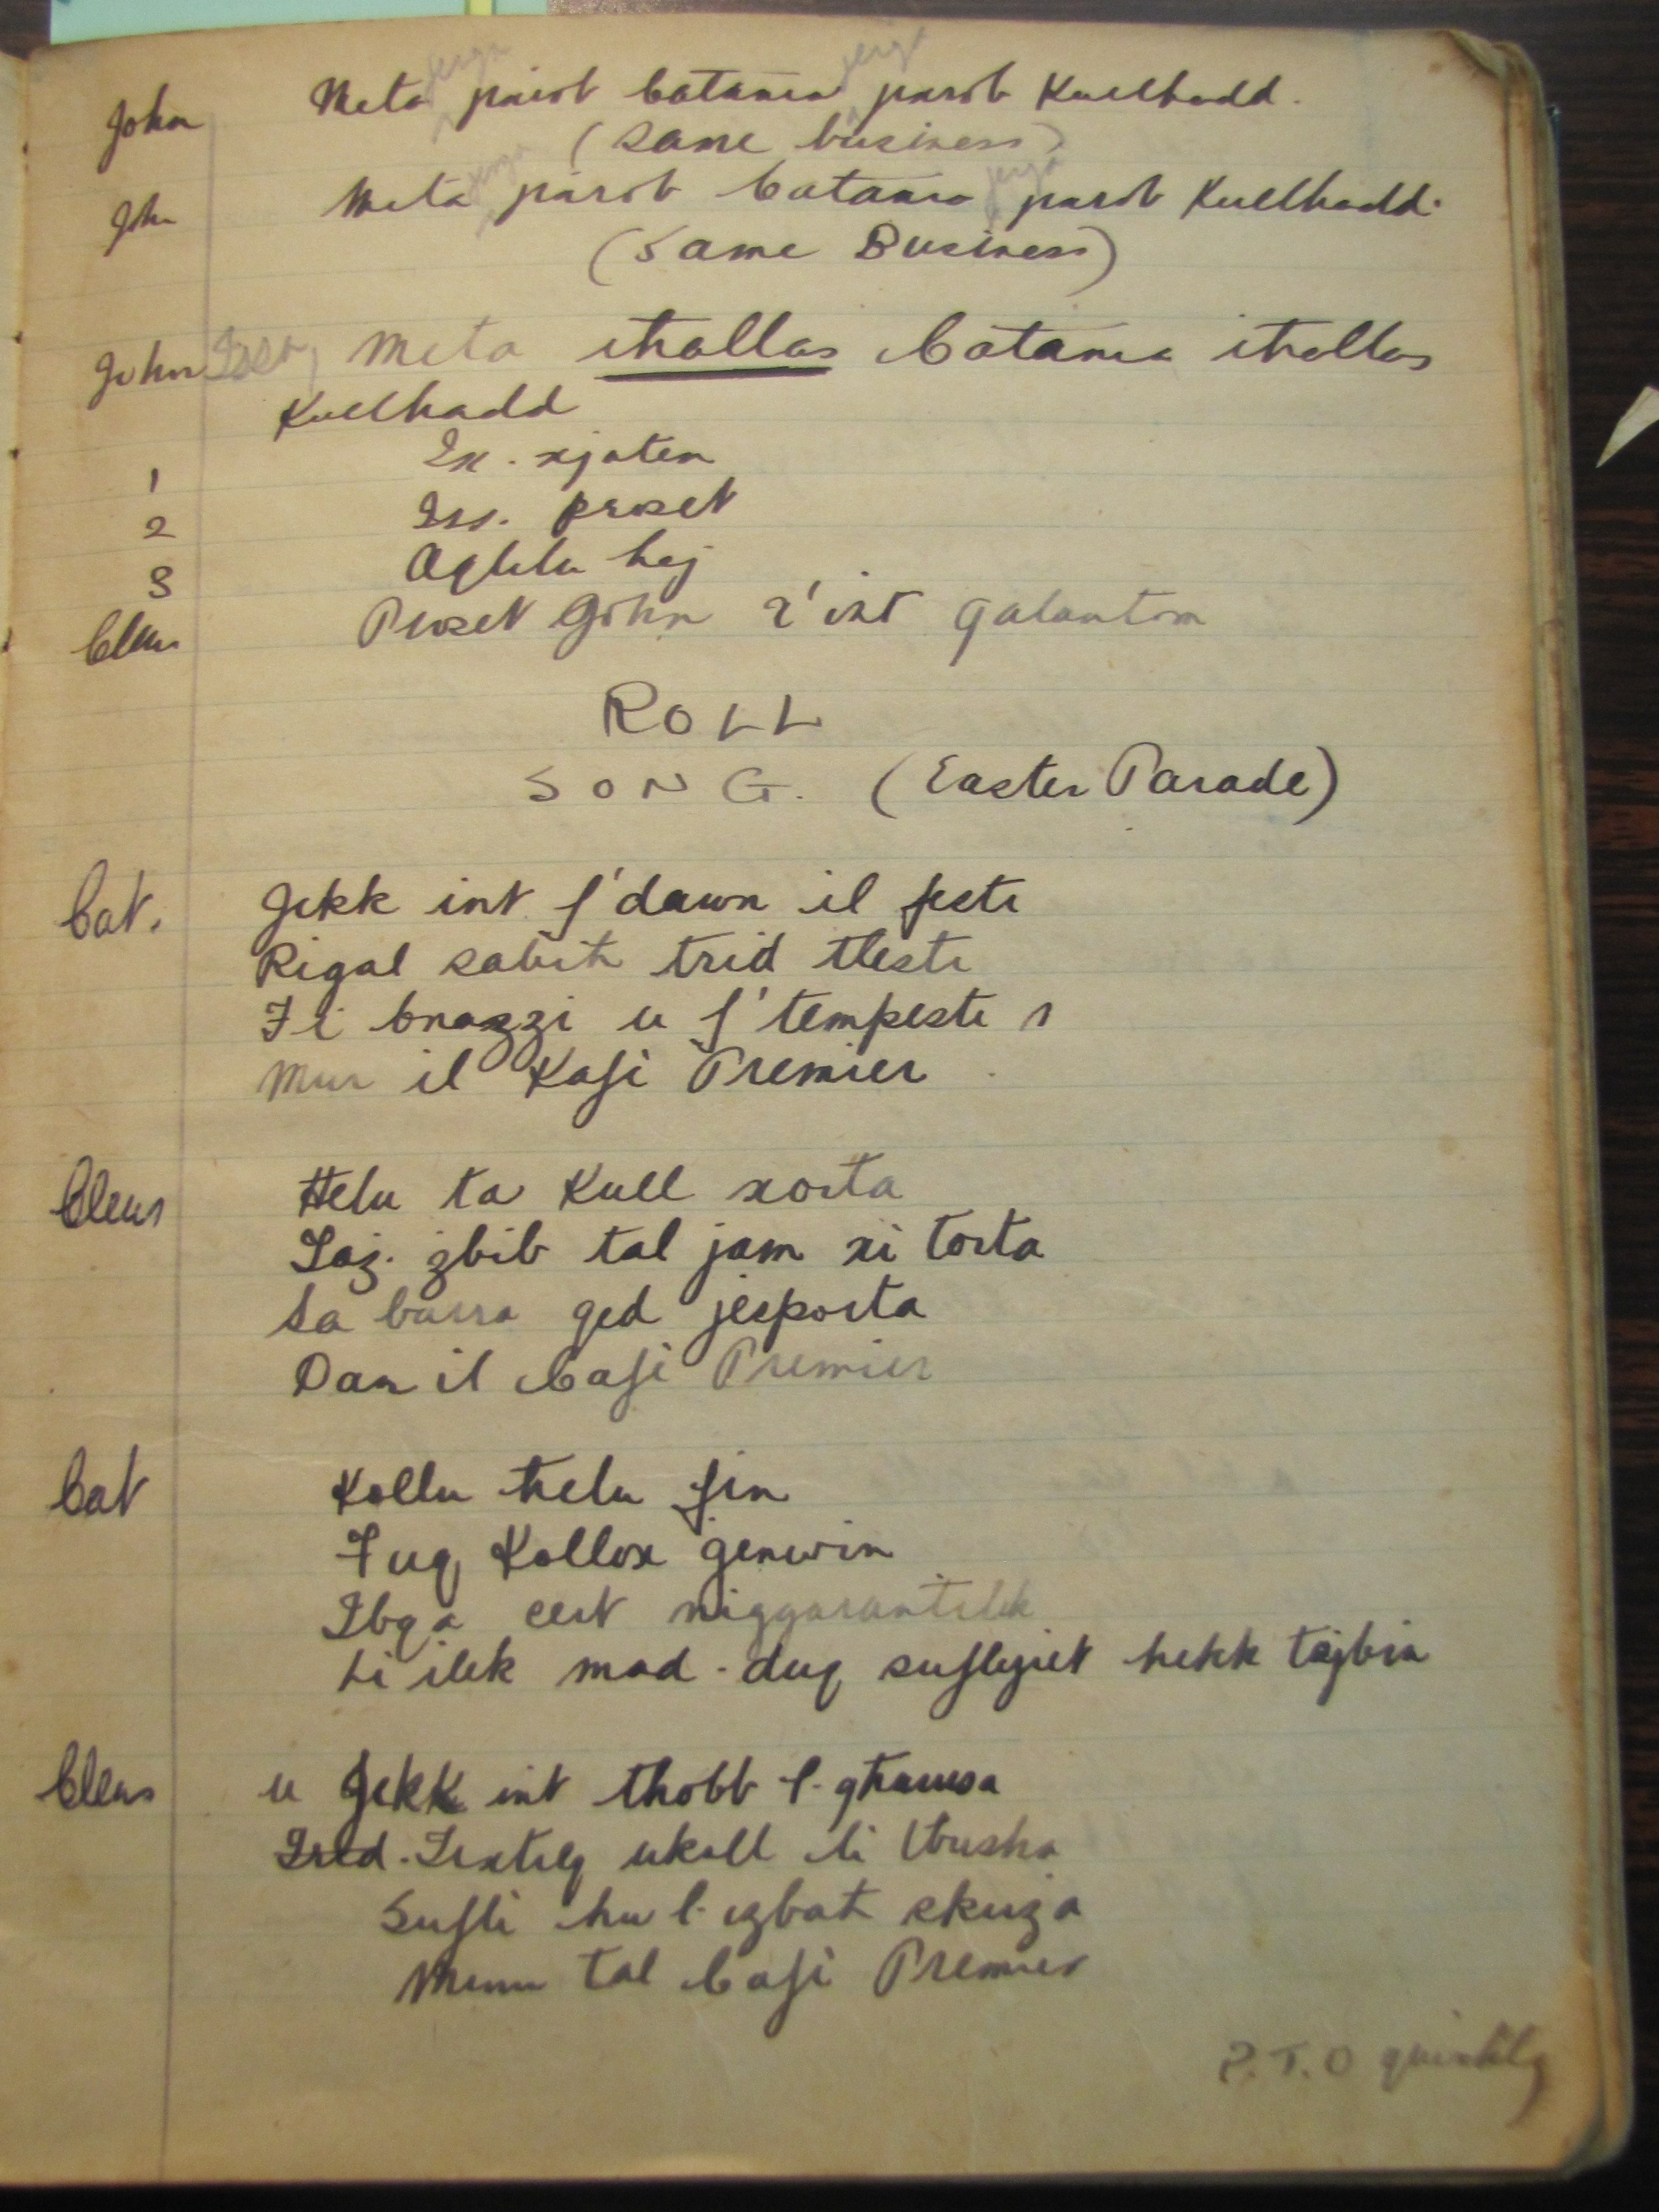 John Meta jerga parot Catania jerga parot Kullhadd.
(Same business)
John Meta jerga parot Catania jerga parot Kullhadd.
(Same Business)
John Meta iħallas Catania iħallas
Kullhadd
1 Ix-xjaten
2 Iss. proset
3 Aqleb hej
Cleus Proset John x'int galantom
ROLL
SONG. (Easter Parade)
Cat. Jekk int f'dawn il festi
Rigal sabiħ trid tlesti
Fi bnazzi u f'tempesti
Mur il Kafi Premier
Cleus Ħelu ta Kull xorta
Laż. żbib tal jam xi torta
Sa barra ġed jesporta
Dan il Cafi Premier
Cat Kollu ħelu fin
Fuq Kollox ġenwin
Ibqa cert niggarantilek
Li ilek mad-duq suflejiet hekk tajbin
Cleus u Jekk int tħobb l-għamsa
Tixtieq ukoll li
Sufli hu l-iżbaħ skuża
Minn tal Cafi Premier
P.T.O quickly